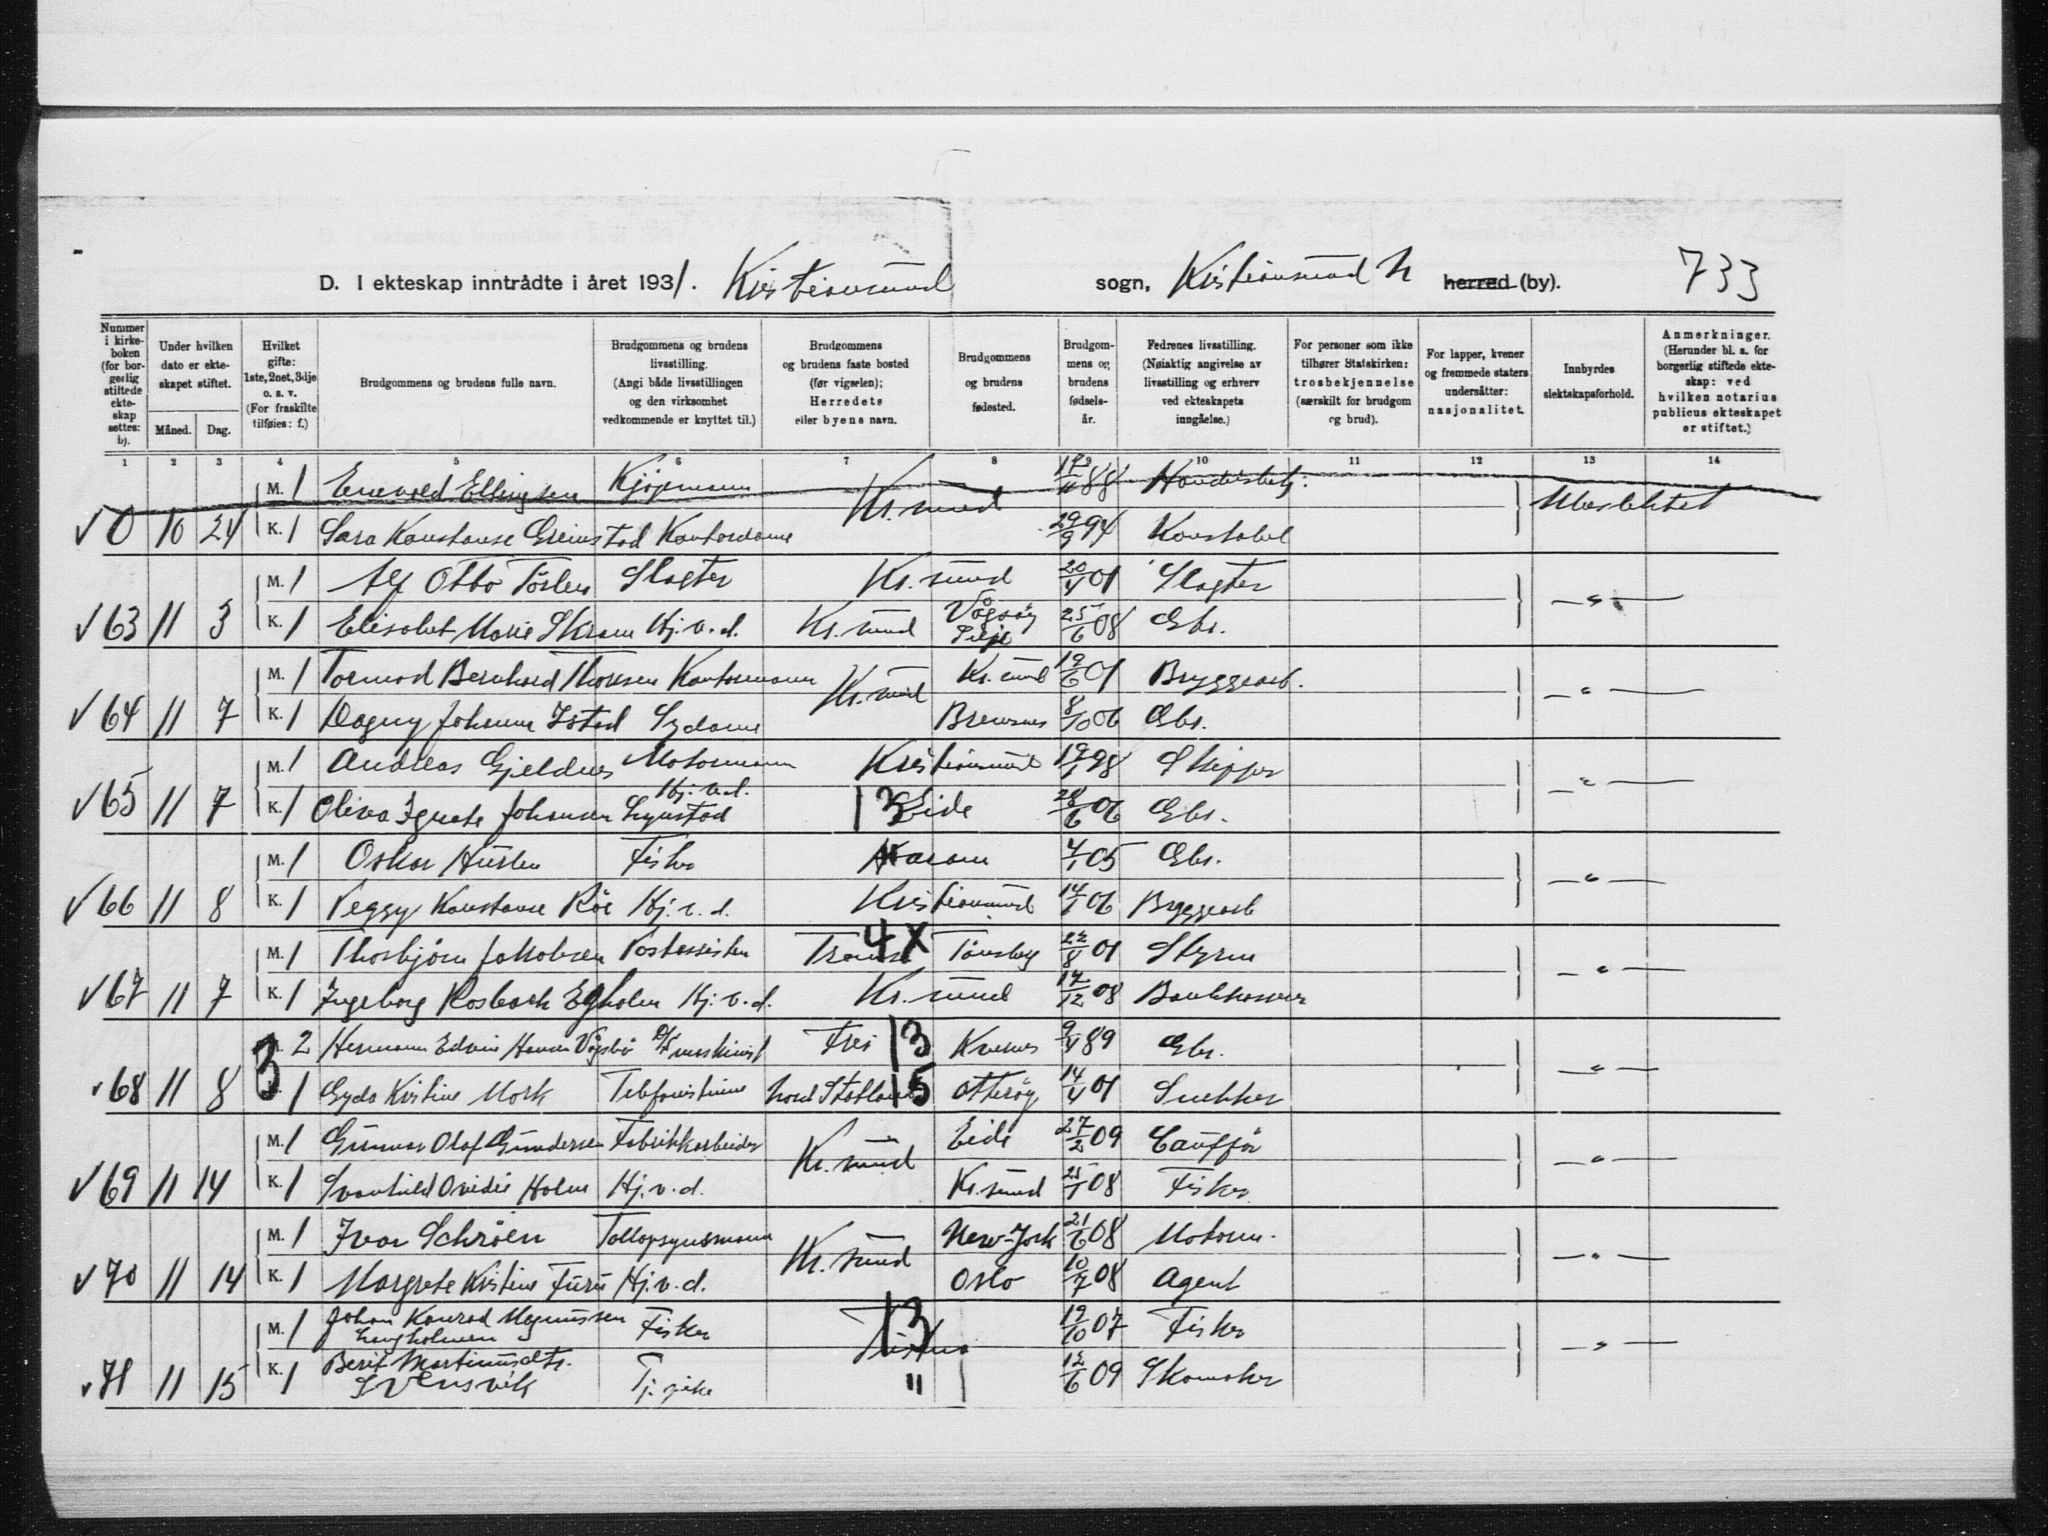 D. I ekteskap inntrådte i året 1931. Kristiansund sogn, Kristiansund N herred (by). 733
Nummer i kirkeboken (for borgerlig stiftede ekteskap settes: bj.
Under hvilken dato er ekteskapet stiftet. Måned. Dag.
Hvilket gifte: 1ste, 2net, 3dje o. s. v. (For fraskilte tilføies: f.)
Brudgommens og brudens fulle navn.
Brudgommens og brudens livsstilling. (Angi både livsstillingen og den virksomhet vedkommende er knyttet til.)
Brudgommens og brudens faste bosted (før vigselen); Herredets eller byens navn.
Brudgommens og brudens fødested.
Brudgommens og brudens fødselsår.
Fedrenes livsstilling. (Nøiaktig angivelse av livsstilling og erhverv ved ekteskapets inngåelse.)
For personer som ikke tilhører Statskirken: trosbekjennelse (særskilt for brudgom og brud).
For lapper, kvener og fremmede staters undersåtter: nasjonalitet.
Innbyrdes slektskapsforhold.
Anmerkninger. (Herunder bl. a. for borgerlig stiftede ekteskap: ved hvilken notarius publicus ekteskapet er stiftet.)
1 2 3 4 5 6 7 8 9 10 11 12 13 14
M. 1 Enevold Ellingsen Kjøpmann Kr. sund 17/11 88 Handelsbetj. Ubeslektet
0 10 24 K. 1 Sara Konstanse Grimstad Kontordame 29/9 94 Konstabel
M. 1 Alf Otto Tøslen Slagter Kr. sund 20/4 01 Slagter — " —
63 11 3 K. 1 Elisabet Marie Skram Hj. v. d. Kr. sund Vågsøy Selje 25/6 08 Gbr.
M. 1 Tormod Bernhard Thoresen Kontormann Kr. sund Kr. sund 19/6 01 Bryggearb. — " —
64 11 7 K. 1 Dagny Johanne Istad Sydame Bremsnes 8/10 06 Gbr.
M. 1 Andreas Gjeldnes Motormann Kristiansund 19/1 98 Skipper — " —
65 11 7 K. 1 Oliva Agnete Johansen Hj. v. d. 13 Eide 28/6 06 Gbr.
M. 1 Oskar Fisker 4/1 05 Gbr. — " —
66 11 8 K. 1 Peggy Konstanse Røe Hj. v. d. Kristiansund 14/1 06 Bryggearb
M. 1 Thorbjørn Jakobsen Postassistent 4 X Tønsberg 22/8 01 Styrm — " —
67 11 7 K. 1 Ingeborg Rosbach Egholm Hj. v. d. Kr. sund 17/12 08 Bankkasserer
3 2 Hermann Edvin Hansen Vågsbø D/S maskinist Frei 13 Kvernes 9/4 89 Gbr. — " —
68 11 8 1 Gyda Kristine Mork Telefonistinne 15 Otterøy 14/4 01 Snekker
M. 1 Gunnar Olaf Gundersen Fabrikkarbeider Kr. sund Eide 27/2 09 Cauffør — " —
69 11 14 K. 1 Svanhild Ovidie Holm Hj. v. d. Kr. sund 25/1 08 Fisker
M. 1 Ivar Schrøen Tollopsynsmann Kr. sund New-York 21/6 08 Motorm. — " —
70 11 14 K. 1 Margrete Kristine Furu Hj. v. d. Oslo 10/7 08 Agent
M. 1 Johan Konrad Magnussen Langholmen Fisker 13 Tustna 19/10 07 Fisker — " —
71 11 15 K. 1 Berit Martinusdtr. Svensvik Tj. pike " 12/6 09 Skomaker